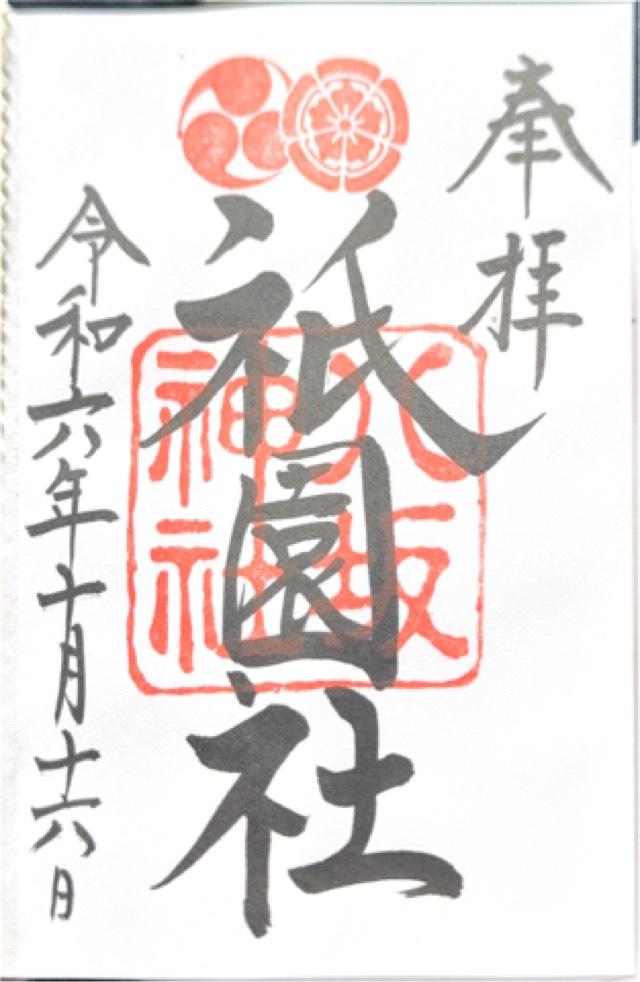 奉拝
祇園社
八坂
神社
令和六年十月十六日